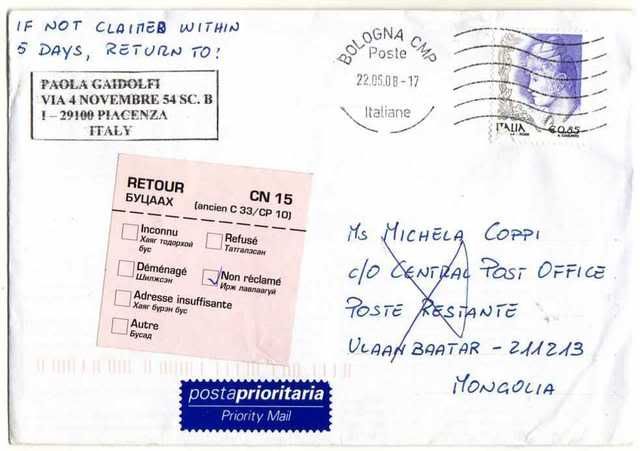 IF NOT CLAIMED WITHIN
5 DAYS, RETURN TO:
PAOLA GAIDOLFI
VIA 4 NOVEMBRE 54 SC. B
I - 29100 PIACENZA
ITALY
BOLOGNA CMP
Poste
22.05.08 - 17
Italiane
ITALIA
€0,65
RETOUR CN 15
БУЦААХ (ancien C 33/CP 10)
Inconnu
Хаяг тодорхой
бус
Refusé
Татгалзсан
Déménagé
Шилжсэн
Non réclamé
Ирж авлаагүй
Adresse insuffisante
Хаяг бүрэн бус
Autre
Бусад
Ms MICHELA COPPI
c/o CENTRAL POST OFFICE
POSTE RESTANTE
ULAANBAATAR - 211213
MONGOLIA
postaprioritaria
Priority Mail